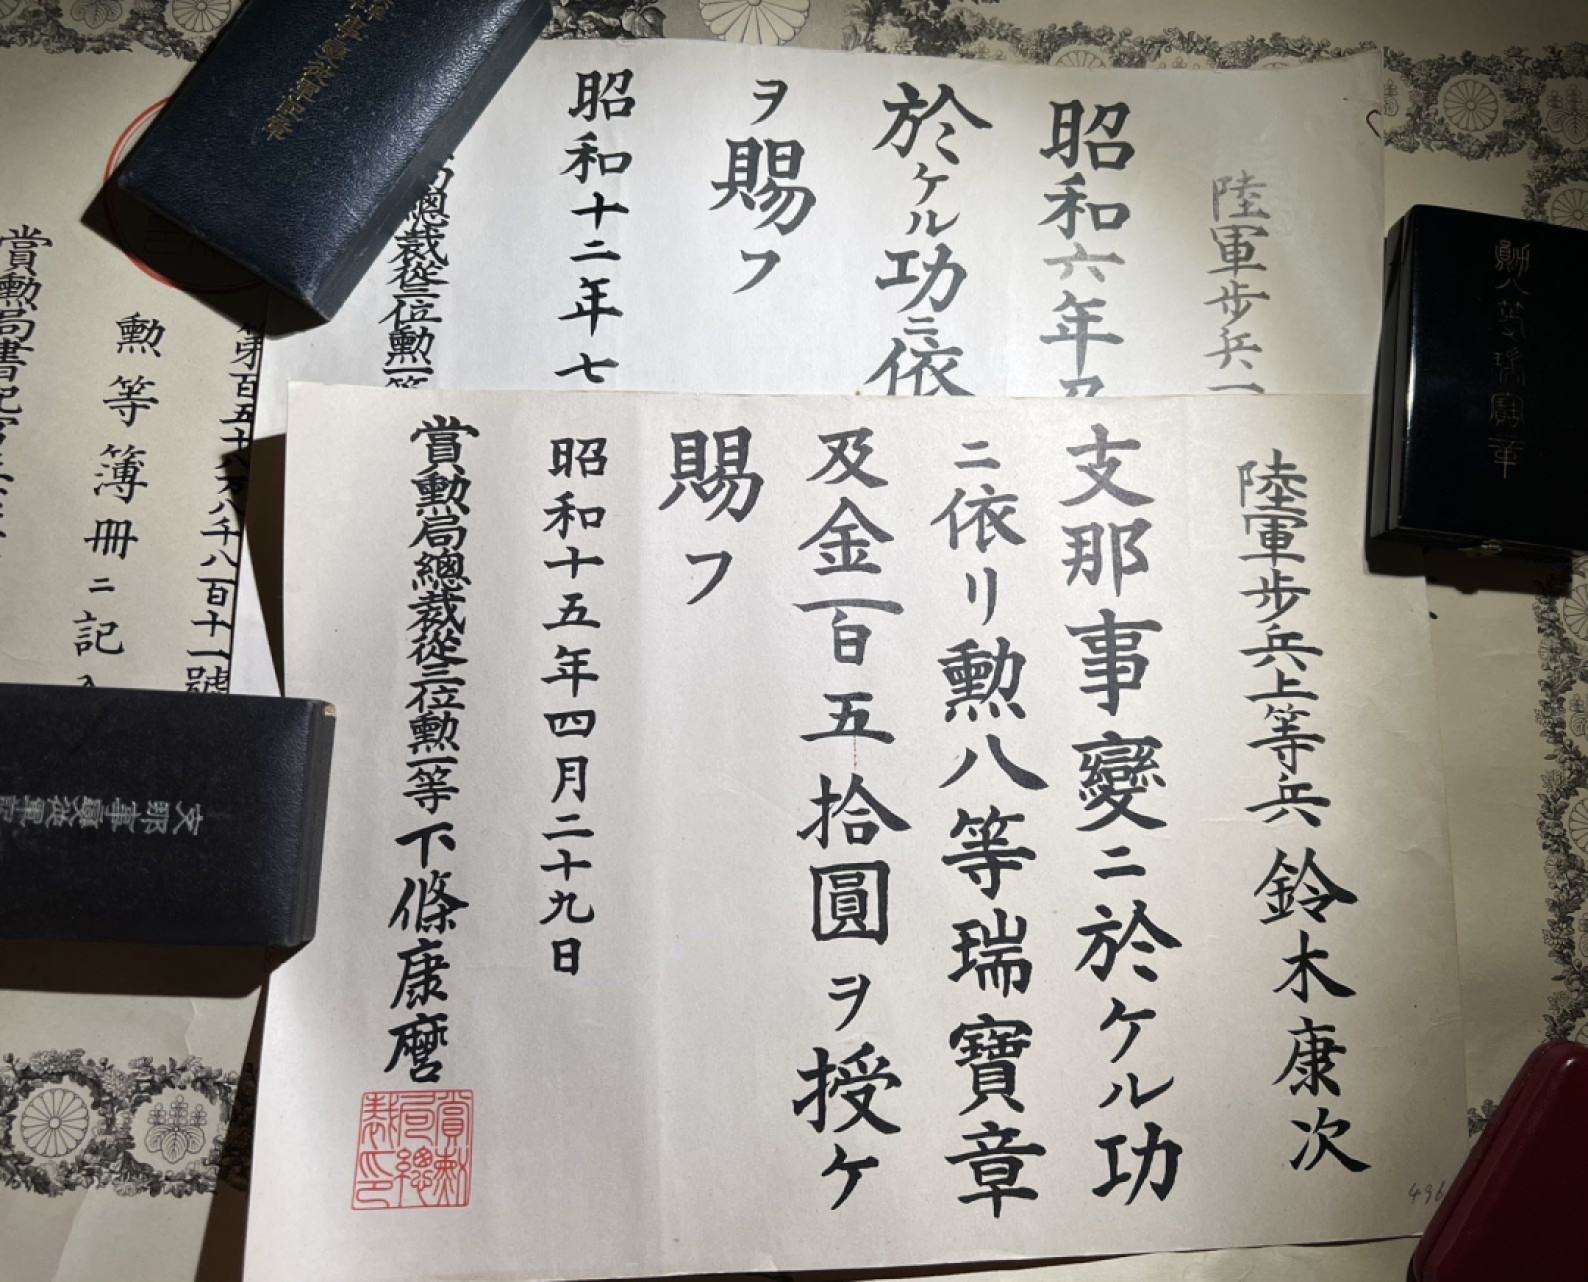 陸軍歩兵上等兵 鈴木康次
支那事變ニ於ケル功
ニ依リ勲八等瑞寶章
及金百五拾圓ヲ授ケ
賜フ
昭和十五年四月二十九日
賞勲局總裁從三位勲一等下條康麿
賞勲局總裁印
496
陸軍歩兵一
昭和六年乃
於ケル功ニ依
ヲ賜フ
昭和十二年七
局總裁從三位勲一等
第百五十八万八千八百十一號
勲等簿冊ニ記入
賞勲局書記官
勲八等瑞寳章
支那事變從軍記